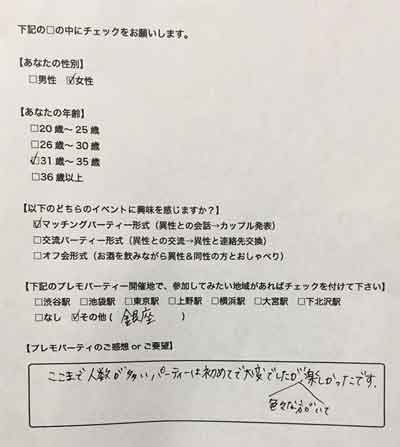 下記の□の中にチェックをお願いします。
【あなたの性別】
□男性 ☑女性
【あなたの年齢】
□20歳～25歳
□26歳～30歳
☑31歳～35歳
□36歳以上
【以下のどちらのイベントに興味を感じますか?】
☑マッチングパーティー形式（異性との会話→カップル発表）
□交流パーティー形式（異性との交流→異性と連絡先交換）
□オフ会形式（お酒を飲みながら異性&同性の方とおしゃべり）
【下記のプレモパーティー開催地で、参加してみたい地域があればチェックを付けて下さい】
□渋谷駅 □池袋駅 □東京駅 □上野駅 □横浜駅 □大宮駅 □下北沢駅
□なし ☑その他( 銀座 )
【プレモパーティのご感想 or ご要望】
ここまで人数が多いパーティーは初めてで大変でしたが楽しかったです。
色々な方がいて